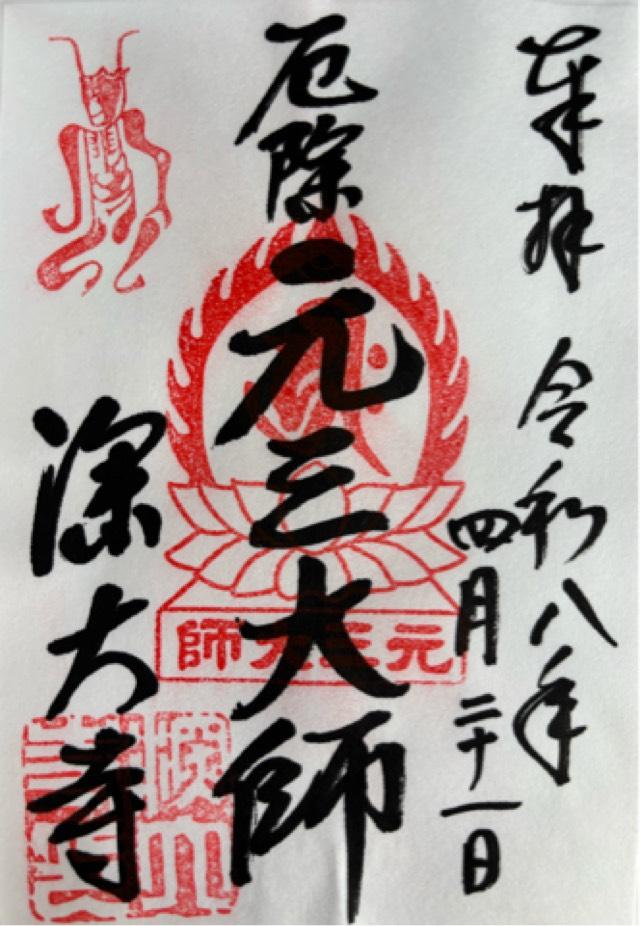 奉拝
令和八年
四月二十一日
厄除
元三大師
元三大師
深大寺